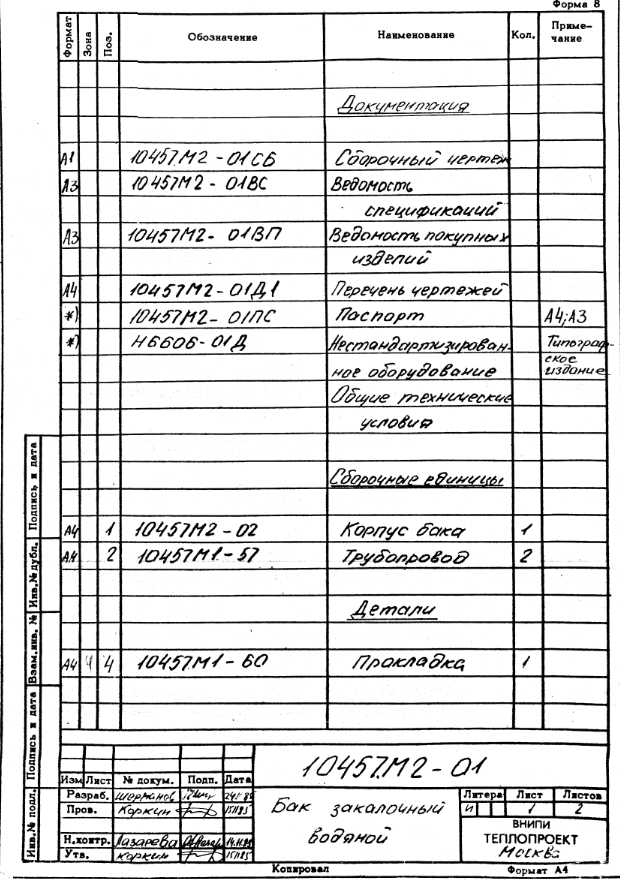 Форма 8
Формат Зона Поз. Обозначение Наименование Кол. Приме-
чание
Документация
А1 10457М2-01СБ Сборочный чертеж
А3 10457М2-01ВС Ведомость
спецификаций
А3 10457М2-01ВП Ведомость покупных
изделий
А4 10457М2-01Д1 Перечень чертежей
*) 10457М2-01ПС Паспорт А4;А3
*) Н6606-01Д Нестандартизирован- Типограф-
ное оборудование ское
издание
Общие технические
условия
Сборочные единицы
А4 1 10457М2-02 Корпус бака 1
А4 2 10457М1-57 Трубопровод 2
Детали
А4 Ч 4 10457М1-60 Прокладка 1
Инв.№ подл. Подпись и дата Взам.инв. № Инв.№ дубл. Подпись и дата
10457М2-01
Изм Лист № докум. Подп. Дата
Разраб.
Пров. Коркин
Н.контр. Лазарева
Утв. Коркин
Бак закалочный
водяной
Литера Лист Листов
И 1 2
ВНИПИ
ТЕПЛОПРОЕКТ
Москва
Копировал Формат А4